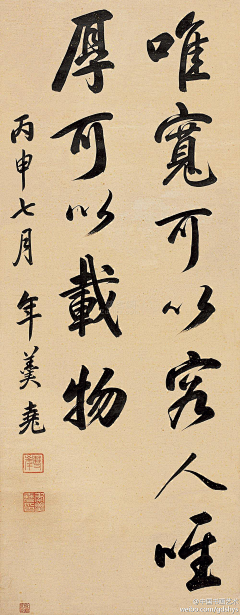 唯寬可以容人唯
厚可以載物
丙申七月 年羹堯
weibo.com/g4dhys